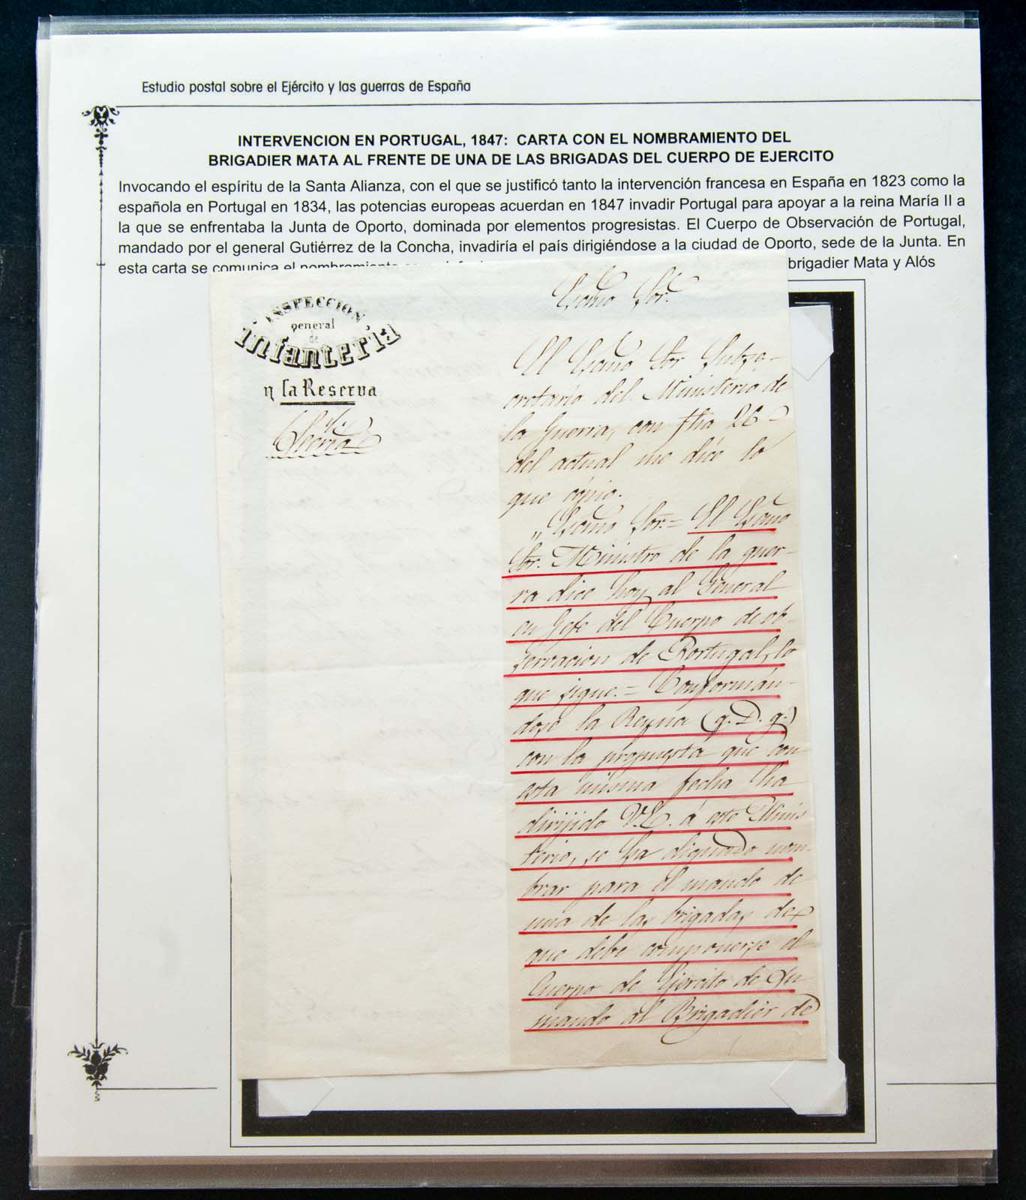 Estudio postal sobre el Ejército y las guerras de España
INTERVENCION EN PORTUGAL, 1847: CARTA CON EL NOMBRAMIENTO DEL
BRIGADIER MATA AL FRENTE DE UNA DE LAS BRIGADAS DEL CUERPO DE EJERCITO
Invocando el espíritu de la Santa Alianza, con el que se justificó tanto la intervención francesa en España en 1823 como la
española en Portugal en 1834, las potencias europeas acuerdan en 1847 invadir Portugal para apoyar a la reina María II a
la que se enfrentaba la Junta de Oporto, dominada por elementos progresistas. El Cuerpo de Observación de Portugal,
mandado por el general Gutiérrez de la Concha, invadiría el país dirigiéndose a la ciudad de Oporto, sede de la Junta. En
esta carta se comunica el nombramiento brigadier Mata y Alós
INSPECCION
general
de
infantería
y la Reserva
Exmo Sor.
El Exmo Sor Subse-
cretario del Ministerio de
la Guerra, con fha 26
del actual me dice lo
que copio.
„Exmo Sor.= El Exmo
Sor. Ministro de la guer-
ra dice hoy al General
en Gefe del Cuerpo de ob-
servacion de Portugal, lo
que sigue.= Conformán-
dose la Reyna (q. D. g.)
con la propuesta que con
esta misma fecha ha
dirijido V.E. á este Minis
terio, se ha dignado nom-
brar para el mando de
una de las brigadas de
que debe componerse el
Cuerpo de Ejercito de su
mando al Brigadiér de